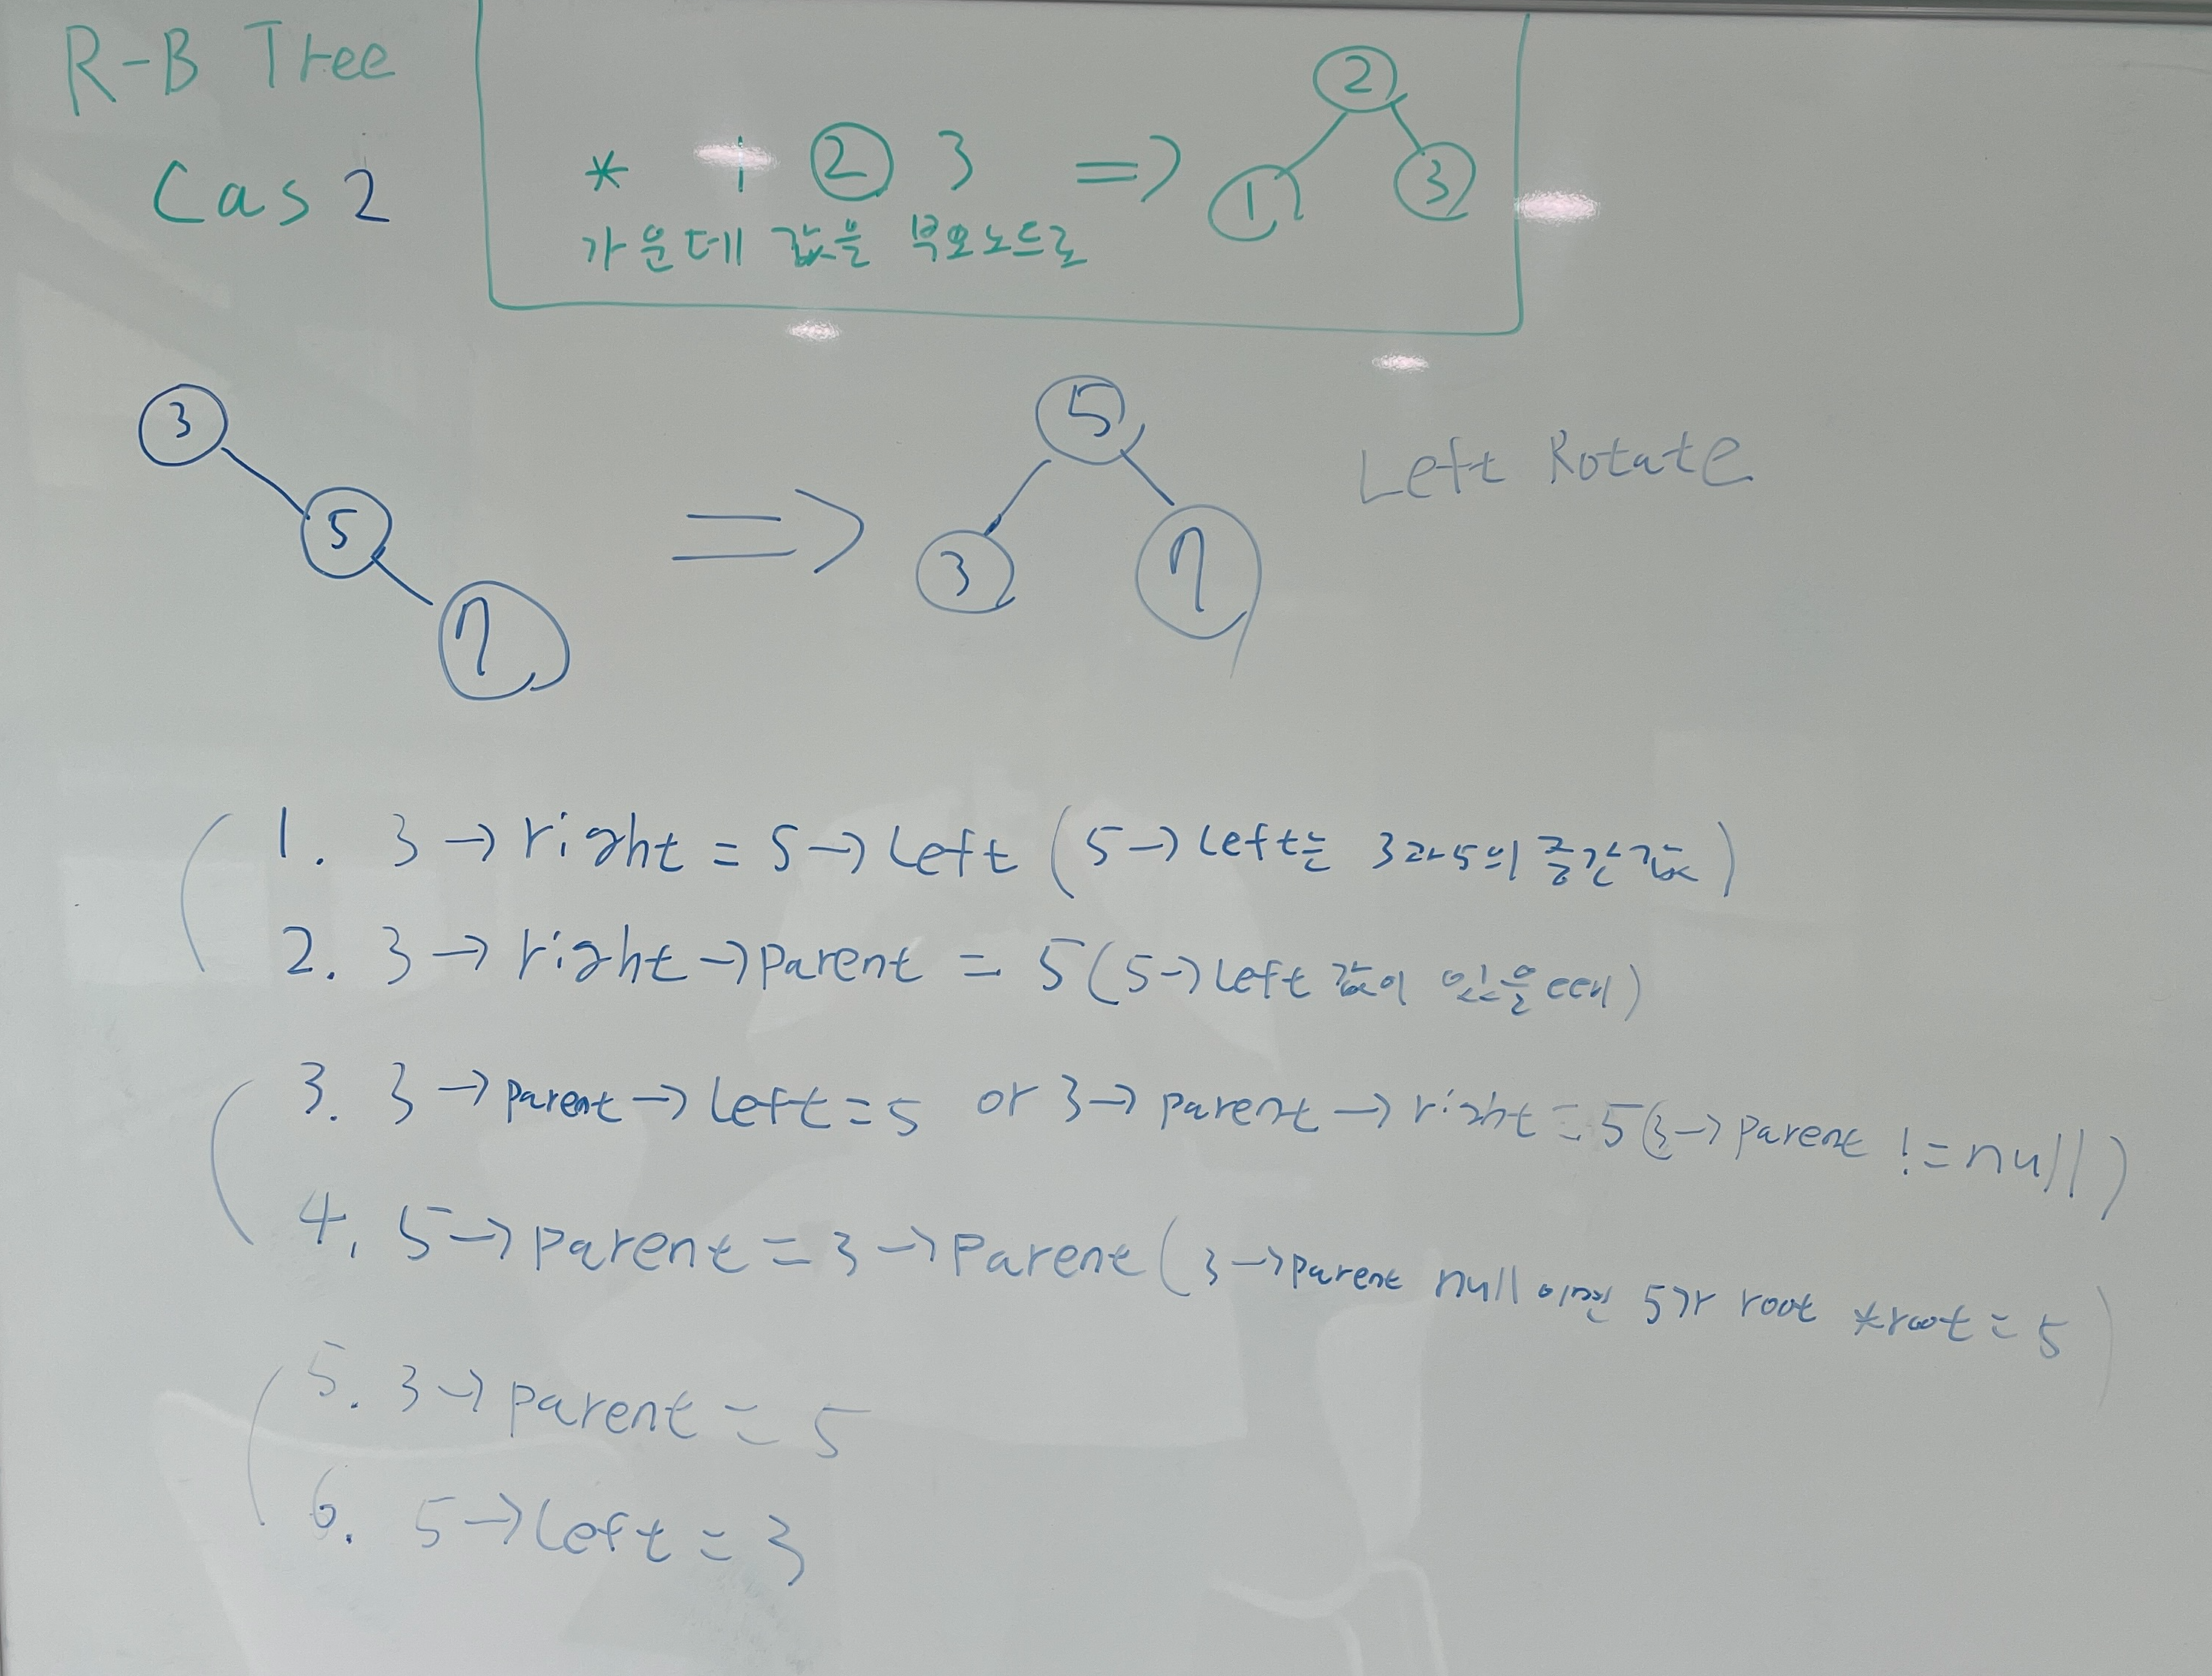 R-B Tree
Cas 2
* 1 2 3 =>
2
1 3
가운데 값을 부모노드로
3
5
7
=>
5
3 7
Left Rotate
1. 3 → right = 5 → Left (5 → Left는 3과 5의 중간값)
2. 3 → right → Parent = 5 (5 → Left 값이 있을 때)
3. 3 → Parent → Left = 5 or 3 → parent → right = 5 (3 → Parent != null)
4. 5 → parent = 3 → Parent (3 → parent null 이면 5가 root *root = 5)
5. 3 → parent = 5
6. 5 → Left = 3